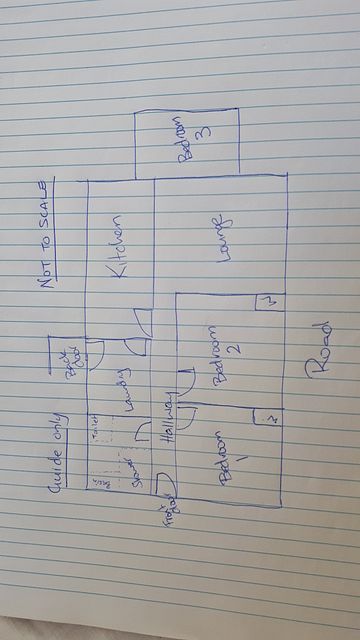 Guide only
NOT TO SCALE
Back
door
Toilet
Shower
Laundry
Kitchen
Bedroom
3
Hallway
Front
door
Bedroom
1
Bedroom
2
Lounge
Road